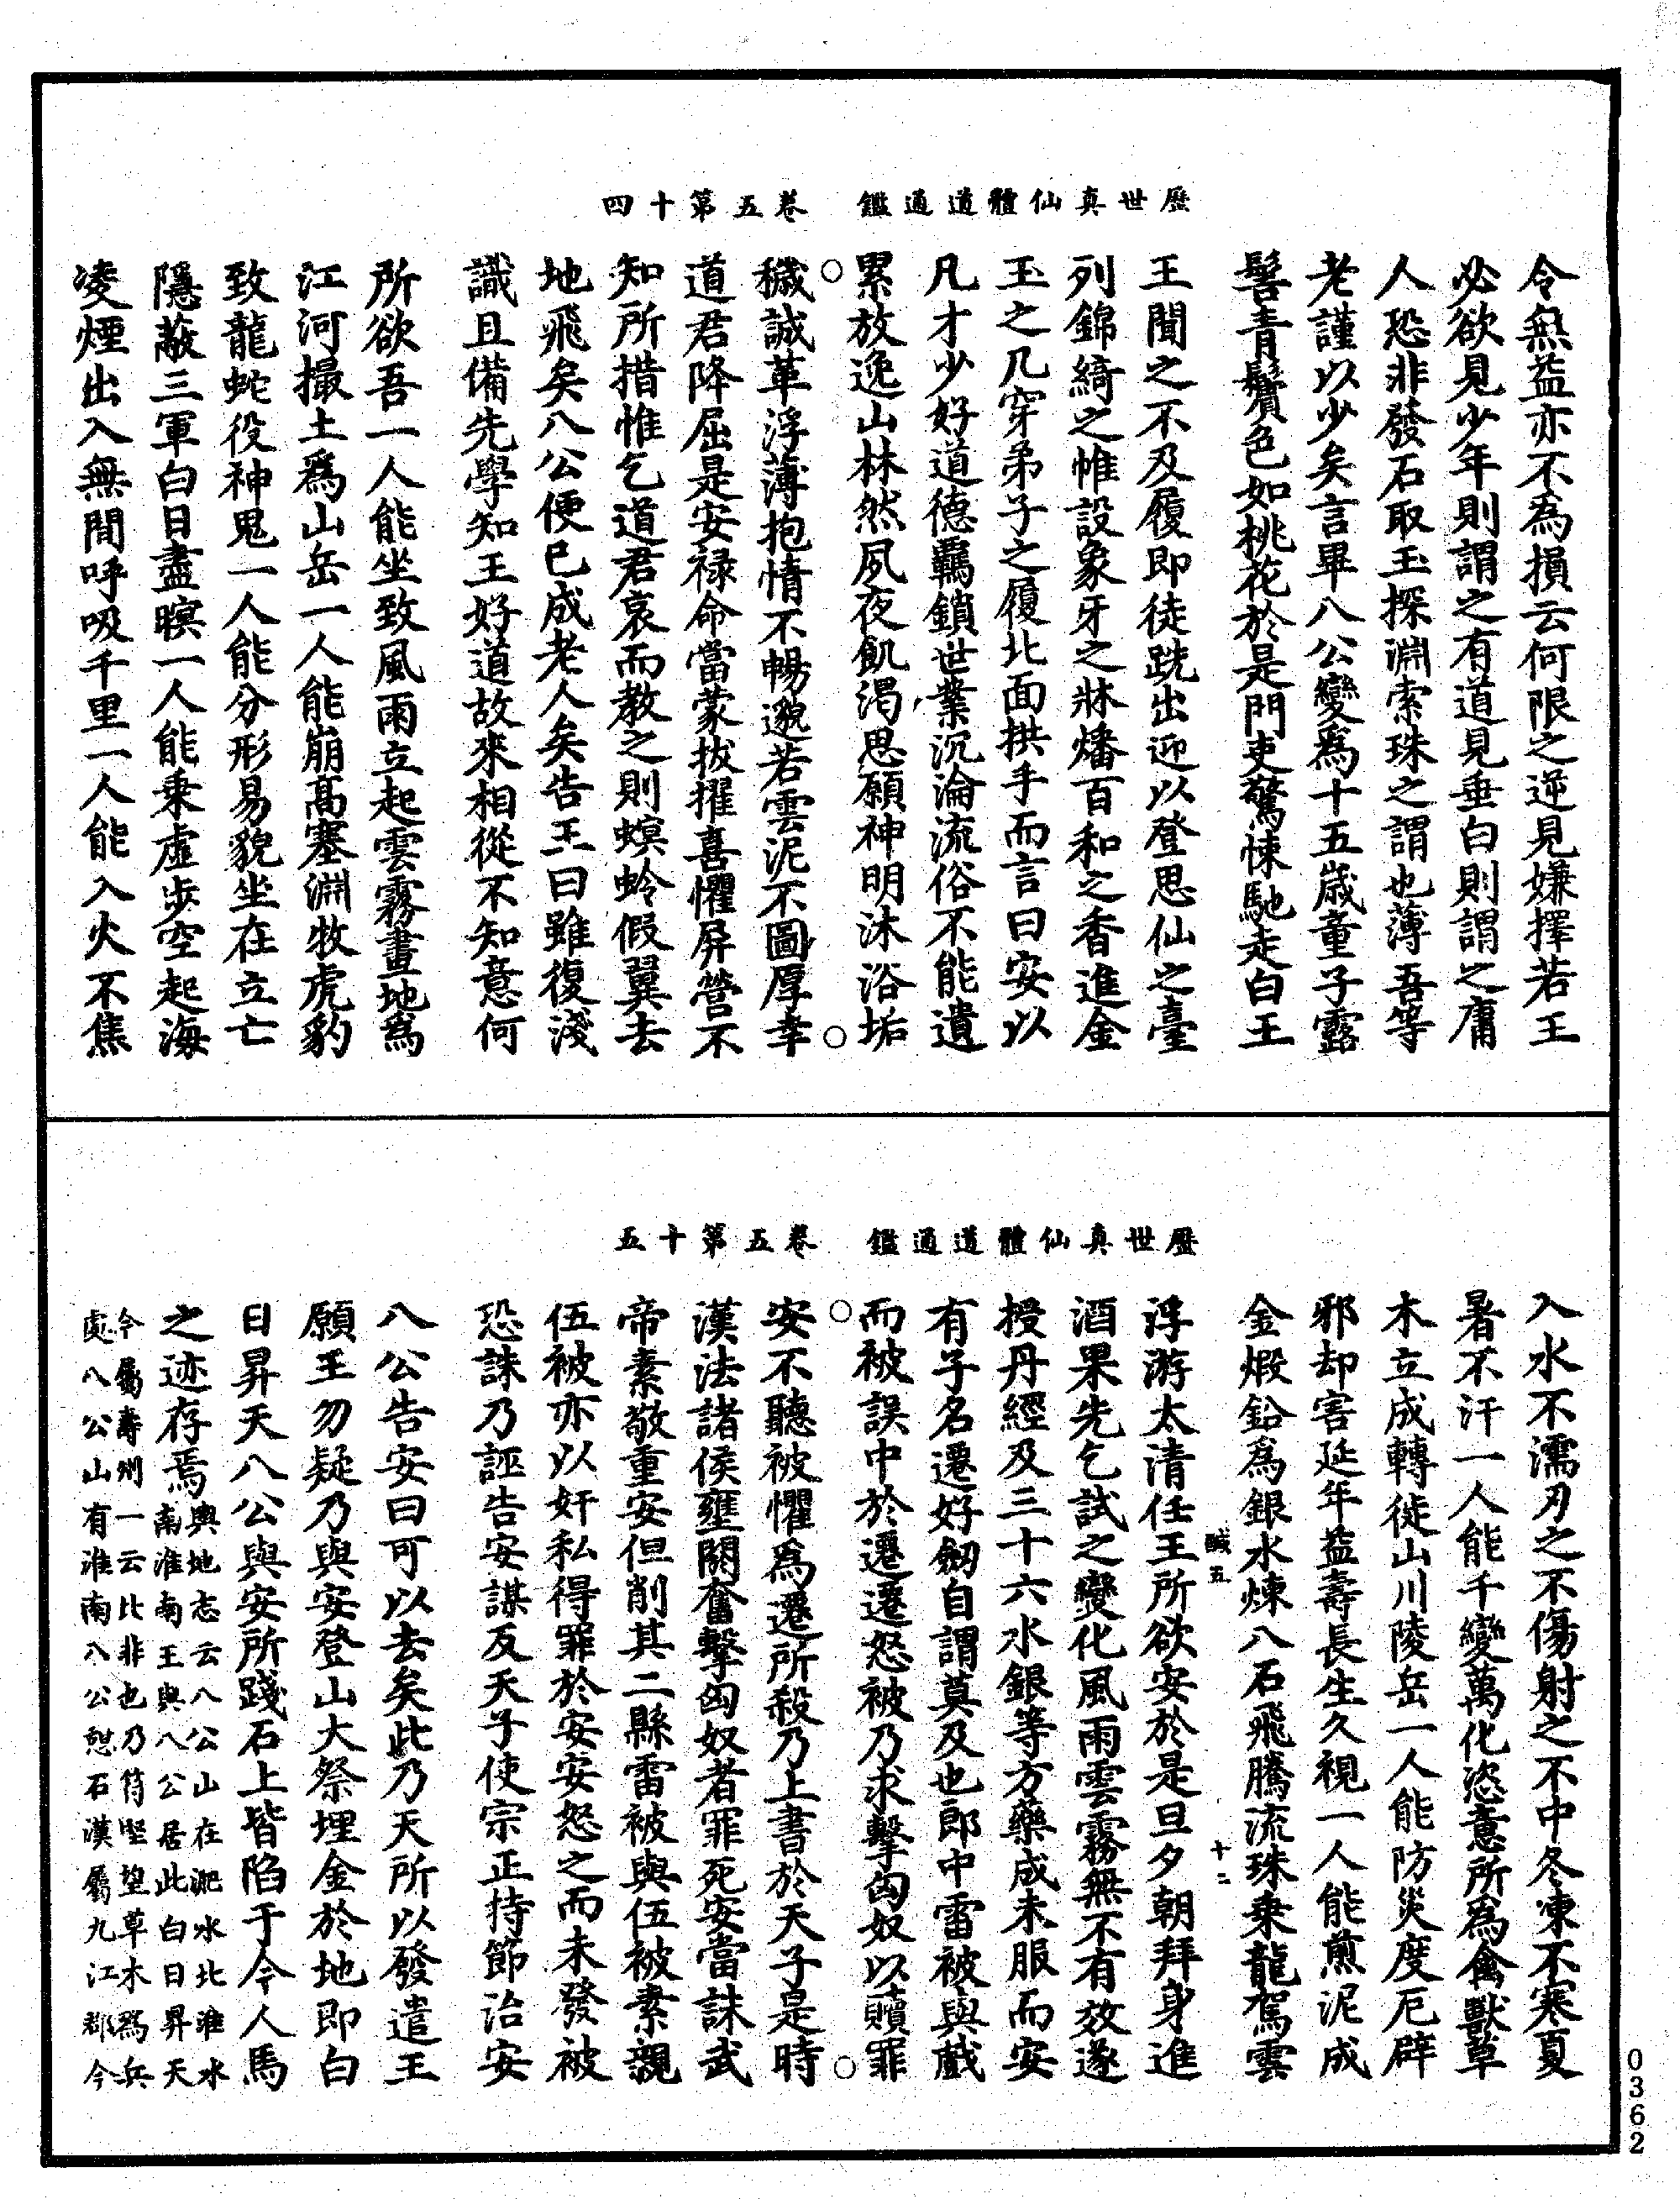 歷世真仙體道通鑑　卷五第十四
令無益亦不為損云何限之逆見嫌擇若王
必欲見少年則謂之有道見垂白則謂之庸
人恐非發石取玉探淵索珠之謂也薄吾等
老謹以少矣言畢八公變為十五歲童子露
髻青鬢色如桃花於是門吏驚悚馳走白王
王聞之不及履即徒跣出迎以登思仙之臺
列錦綺之帷設象牙之牀燔百和之香進金
玉之几穿弟子之履北面拱手而言曰安以
凡才少好道德羈鎖世業沉淪流俗不能遺
累放逸山林然夙夜飢渴思願神明沐浴垢
穢誠革浮薄抱情不暢邈若雲泥不圖厚幸
道君降屈是安祿命當蒙拔擢喜懼屏營不
知所措惟乞道君哀而教之則螟蛉假翼去
地飛矣八公便已成老人矣告王曰雖復淺
識且備先學知王好道故來相從不知意何
所欲吾一人能坐致風雨立起雲霧畫地為
江河撮土為山岳一人能崩高塞淵牧虎豹
致龍蛇役神鬼一人能分形易貌坐在立亡
隱蔽三軍白日盡暝一人能乘虛步空起海
凌煙出入無間呼吸千里一人能入火不焦
歷世真仙體道通鑑　卷五第十五
入水不濡刃之不傷射之不中冬凍不寒夏
暑不汗一人能千變萬化恣意所為禽獸草
木立成轉徙山川陵岳一人能防災度厄辟
邪却害延年益壽長生久視一人能煎泥成
金煅鉛為銀水煉八石飛騰流珠乘龍駕雲
鹹五　十二
浮游太清任王所欲安於是旦夕朝拜身進
酒果先乞試之變化風雨雲霧無不有效遂
授丹經及三十六水銀等方藥成未服而安
有子名遷好劒自謂莫及也郎中雷被與戲
而被誤中於遷遷怒被乃求擊匈奴以贖罪
安不聽被懼為遷所殺乃上書於天子是時
漢法諸侯壅閼奮擊匈奴者罪死安當誅武
帝素敬重安但削其二縣雷被與伍被素親
伍被亦以奸私得罪於安安怒之而未發被
恐誅乃誣告安謀反天子使宗正持節治安
八公告安曰可以去矣此乃天所以發遣王
願王勿疑乃與安登山大祭埋金於地即白
日昇天八公與安所踐石上皆陷于今人馬
之迹存焉輿地志云八公山在淝水北淮水
南淮南王與八公居此白日昇天
今屬壽州一云比非也乃苻堅望草木為兵
處八公山有淮南八公憩石漢屬九江郡今
0362